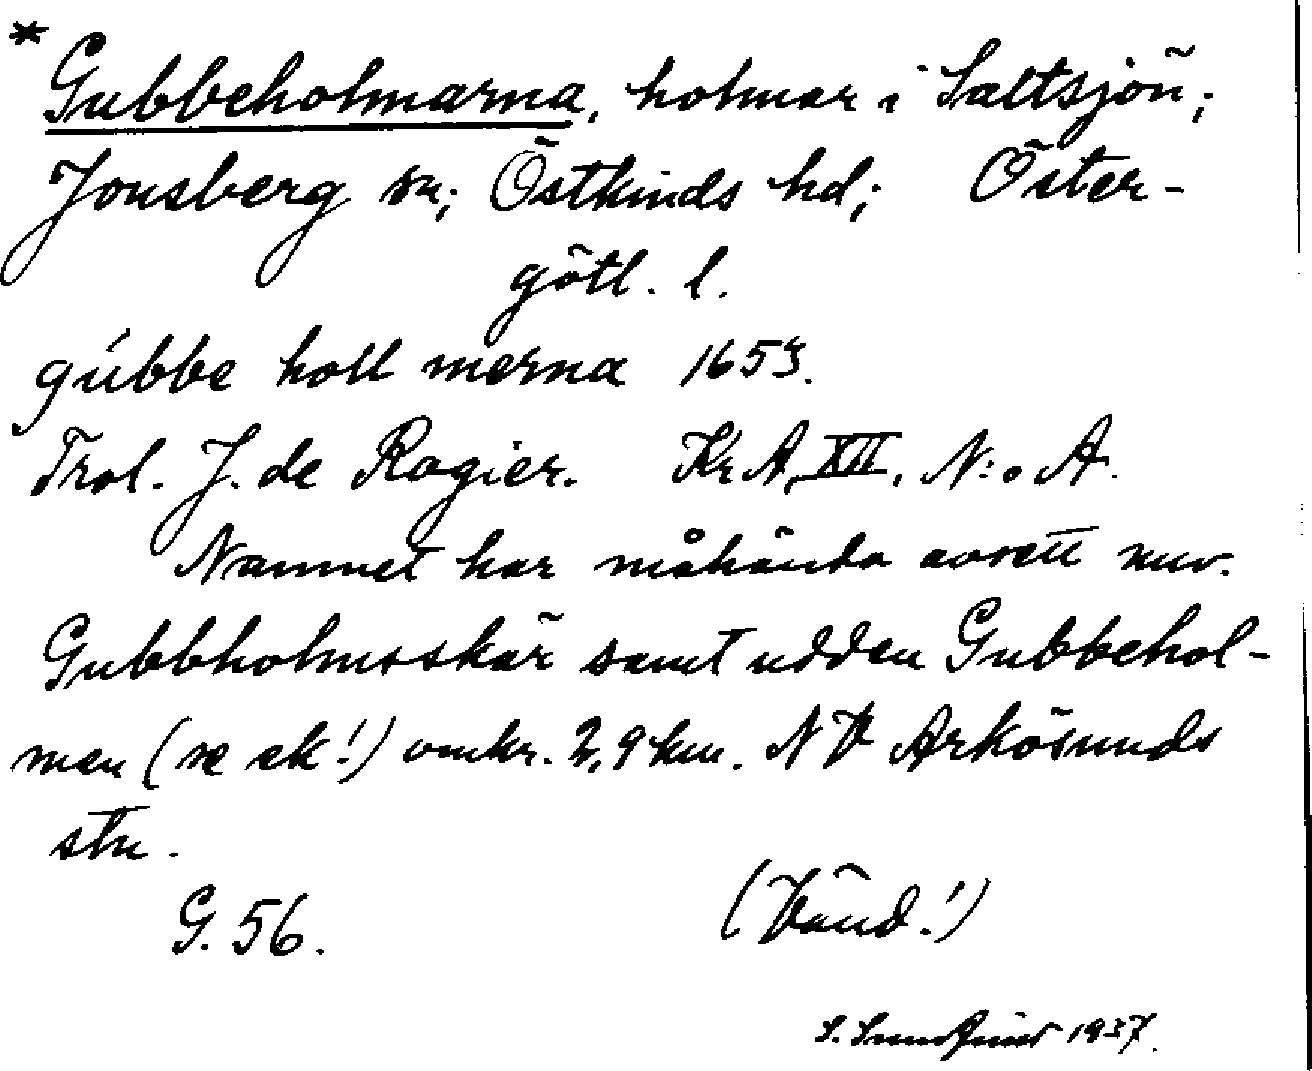 * Gubbeholmarna, holmar i Saltsjön;
Jonsberg sn; Östkinds hd; Öster-
götl. l.
gúbbe holl merna 1653.
Trol. J. de Rogier. KrA, XII, N:o A.
Namnet har måhända avsett nuv.
Gubbholmsskär samt udden Gubbehol-
men (se ek!) omkr. 2,9 km. NV Arkösunds
stn.
G. 56. (Vänd!)
S. 1937.